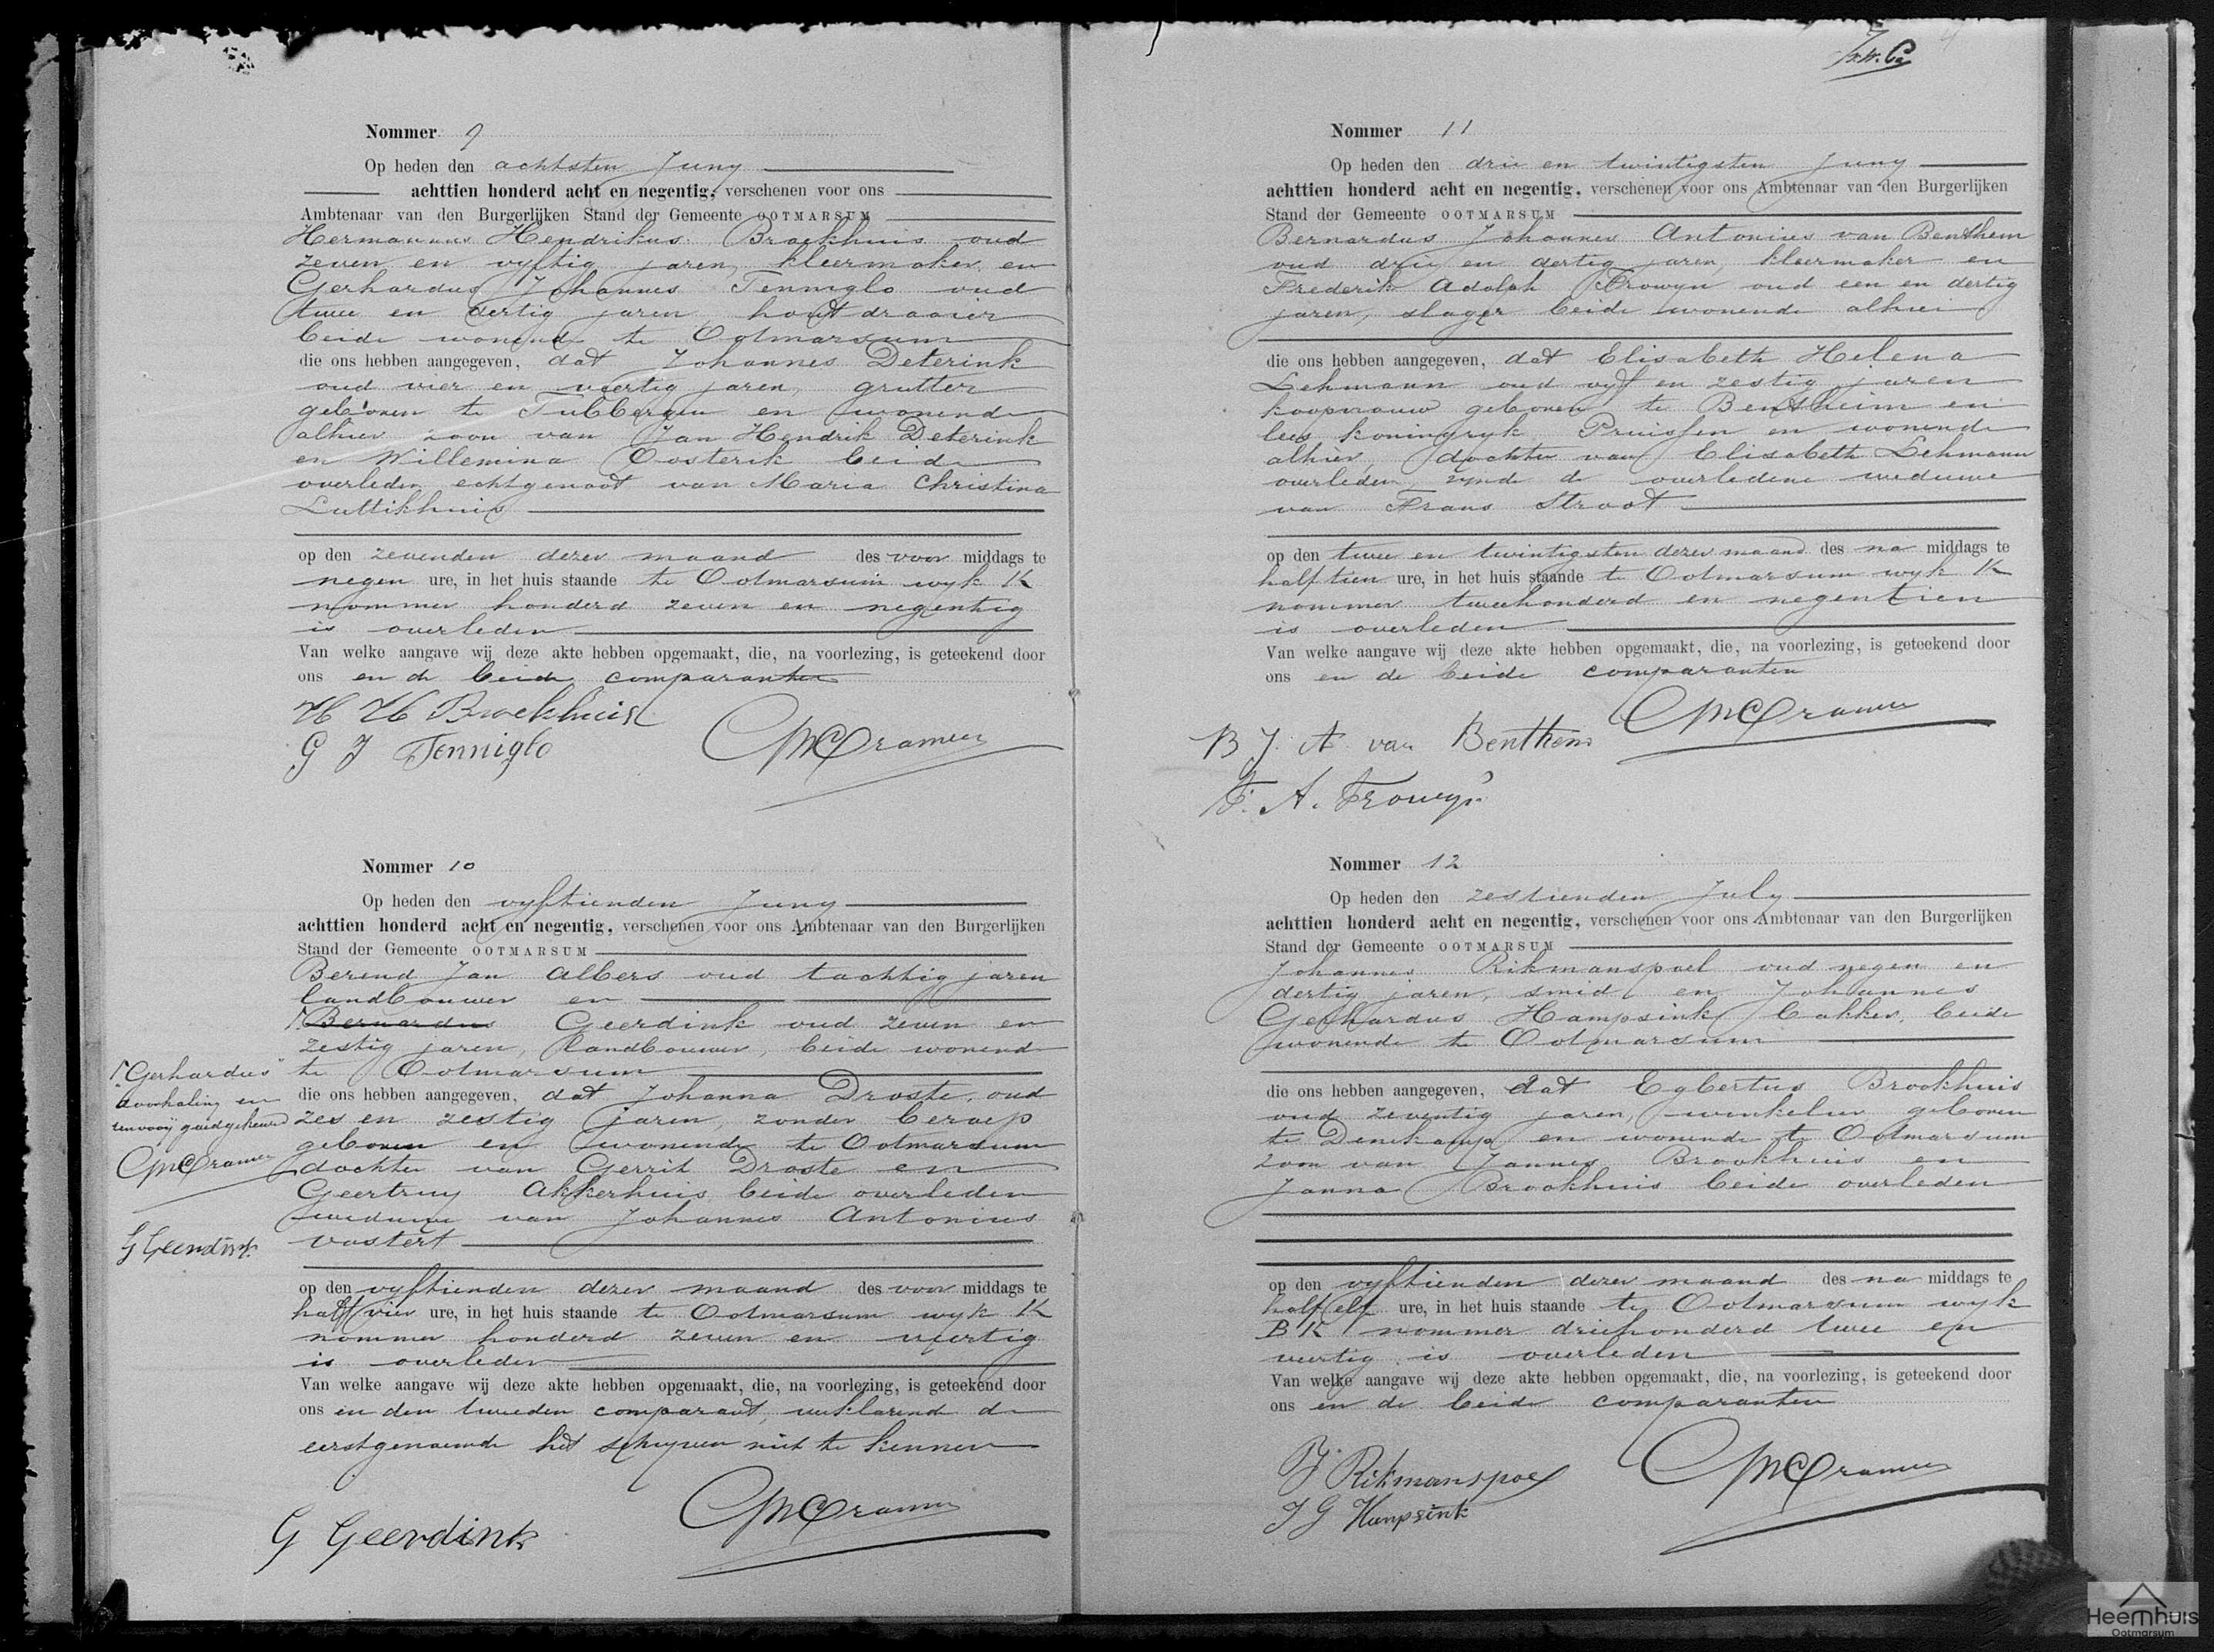 Nommer 9
Op heden den achtsten Juny
achttien honderd acht en negentig, verschenen voor ons
Ambtenaar van den Burgerlijken Stand der Gemeente OOTMARSUM
Hermannus Hendrikus Broekhuis oud
zeven en vyftig jaren, kleermaker en
Gerhardus Johannes Tenniglo oud
twee en dertig jaren, houtdraaier
beide wonende te Ootmarsum
die ons hebben aangegeven, dat Johannes Deterink
oud vier en veertig jaren, grutter
geboren te Tubbergen en wonende
alhier zoon van Jan Hendrik Deterink
en Willemina Oosterik beide
overleden echtgenoot van Maria Christina
Luttikhuis
op den zevenden dezer maand des voor middags te
negen ure, in het huis staande te Ootmarsum wyk K
nommer honderd zeven en negentig
is overleden
Van welke aangave wij deze akte hebben opgemaakt, die, na voorlezing, is geteekend door
ons en de beide comparanten
H H Broekhuis
G J Tenniglo
Cramer
Nommer 10
Op heden den vyftienden Juny
achttien honderd acht en negentig, verschenen voor ons Ambtenaar van den Burgerlijken
Stand der Gemeente OOTMARSUM
Berend Jan Albers oud tachtig jaren
landbouwer en
Bernardus Geerdink oud zeven en
zestig jaren, landbouwer, beide wonende
te Ootmarsum
"Gerhardus"
doorhaling en
goedgekeurd
Cramer
G Geerdink
die ons hebben aangegeven, dat Johanna Droste, oud
zes en zestig jaren, zonder beroep
geboren en wonende te Ootmarsum
dochter van Gerrit Droste en
Geertruy Akkerhuis beide overleden
weduwe van Johannes Antonius
Vastert
op den vyftienden dezer maand des voor middags te
half vier ure, in het huis staande te Ootmarsum wyk K
nommer honderd zeven en veertig
is overleden
Van welke aangave wij deze akte hebben opgemaakt, die, na voorlezing, is geteekend door
ons en den tweeden comparant, verklarende de
eerstgenoemde het schryven niet te kennen
G Geerdink
Cramer
Nommer 11
Op heden den drie en twintigsten Juny
achttien honderd acht en negentig, verschenen voor ons Ambtenaar van den Burgerlijken
Stand der Gemeente OOTMARSUM
Bernardus Johannes Antonius van Benthem
oud drie en dertig jaren, kleermaker en
Frederik Adolph Frowyn oud een en dertig
jaren, slager beide wonende alhier
die ons hebben aangegeven, dat Elisabeth Helena
Lehmann oud vyf en zestig jaren
koopvrouw geboren te Bentheim en
lees koningryk Pruissen en wonende
alhier, dochter van Elisabeth Lehmann
overleden, zynde de overledene weduwe
van Frans Stroot
op den twee en twintigsten dezer maand des na middags te
half tien ure, in het huis staande te Ootmarsum wyk K
nommer tweehonderd en negentien
is overleden
Van welke aangave wij deze akte hebben opgemaakt, die, na voorlezing, is geteekend door
ons en de beide comparanten
Cramer
B J. A. van Benthem
F. A. Frowyn
Nommer 12
Op heden den zestienden July
achttien honderd acht en negentig, verschenen voor ons Ambtenaar van den Burgerlijken
Stand der Gemeente OOTMARSUM
Johannes Rikmanspoel oud negen en
dertig jaren, smid en Johannes
Gerhardus Hampsink bakker, beide
wonende te Ootmarsum
die ons hebben aangegeven, dat Egbertus Brookhuis
oud zeventig jaren, winkelier geboren
te Denekamp en wonende te Ootmarsum
zoon van Jannes Brookhuis en
Janna Brookhuis beide overleden
op den vyftienden dezer maand des na middags te
half elf ure, in het huis staande te Ootmarsum wyk
B K nommer driehonderd twee en
veertig is overleden
Van welke aangave wij deze akte hebben opgemaakt, die, na voorlezing, is geteekend door
ons en de beide comparanten
J Rikmanspoel
Cramer
J G Hampsink
Heemhuis
Ootmarsum